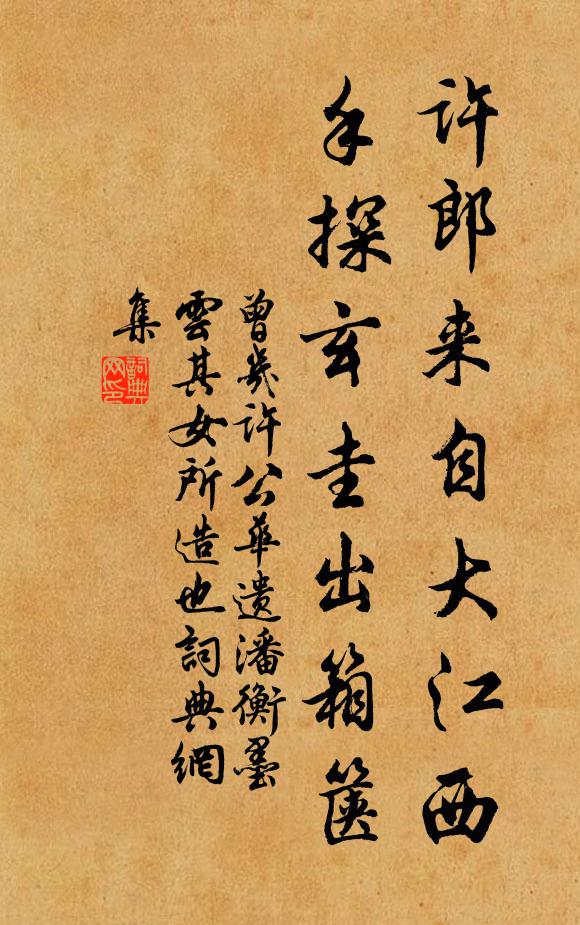 许郎来自大江西
手探玄圭出箱箧
曾几许公华遗潘衡墨
雲其女所造也詞典網
集
詞典网印